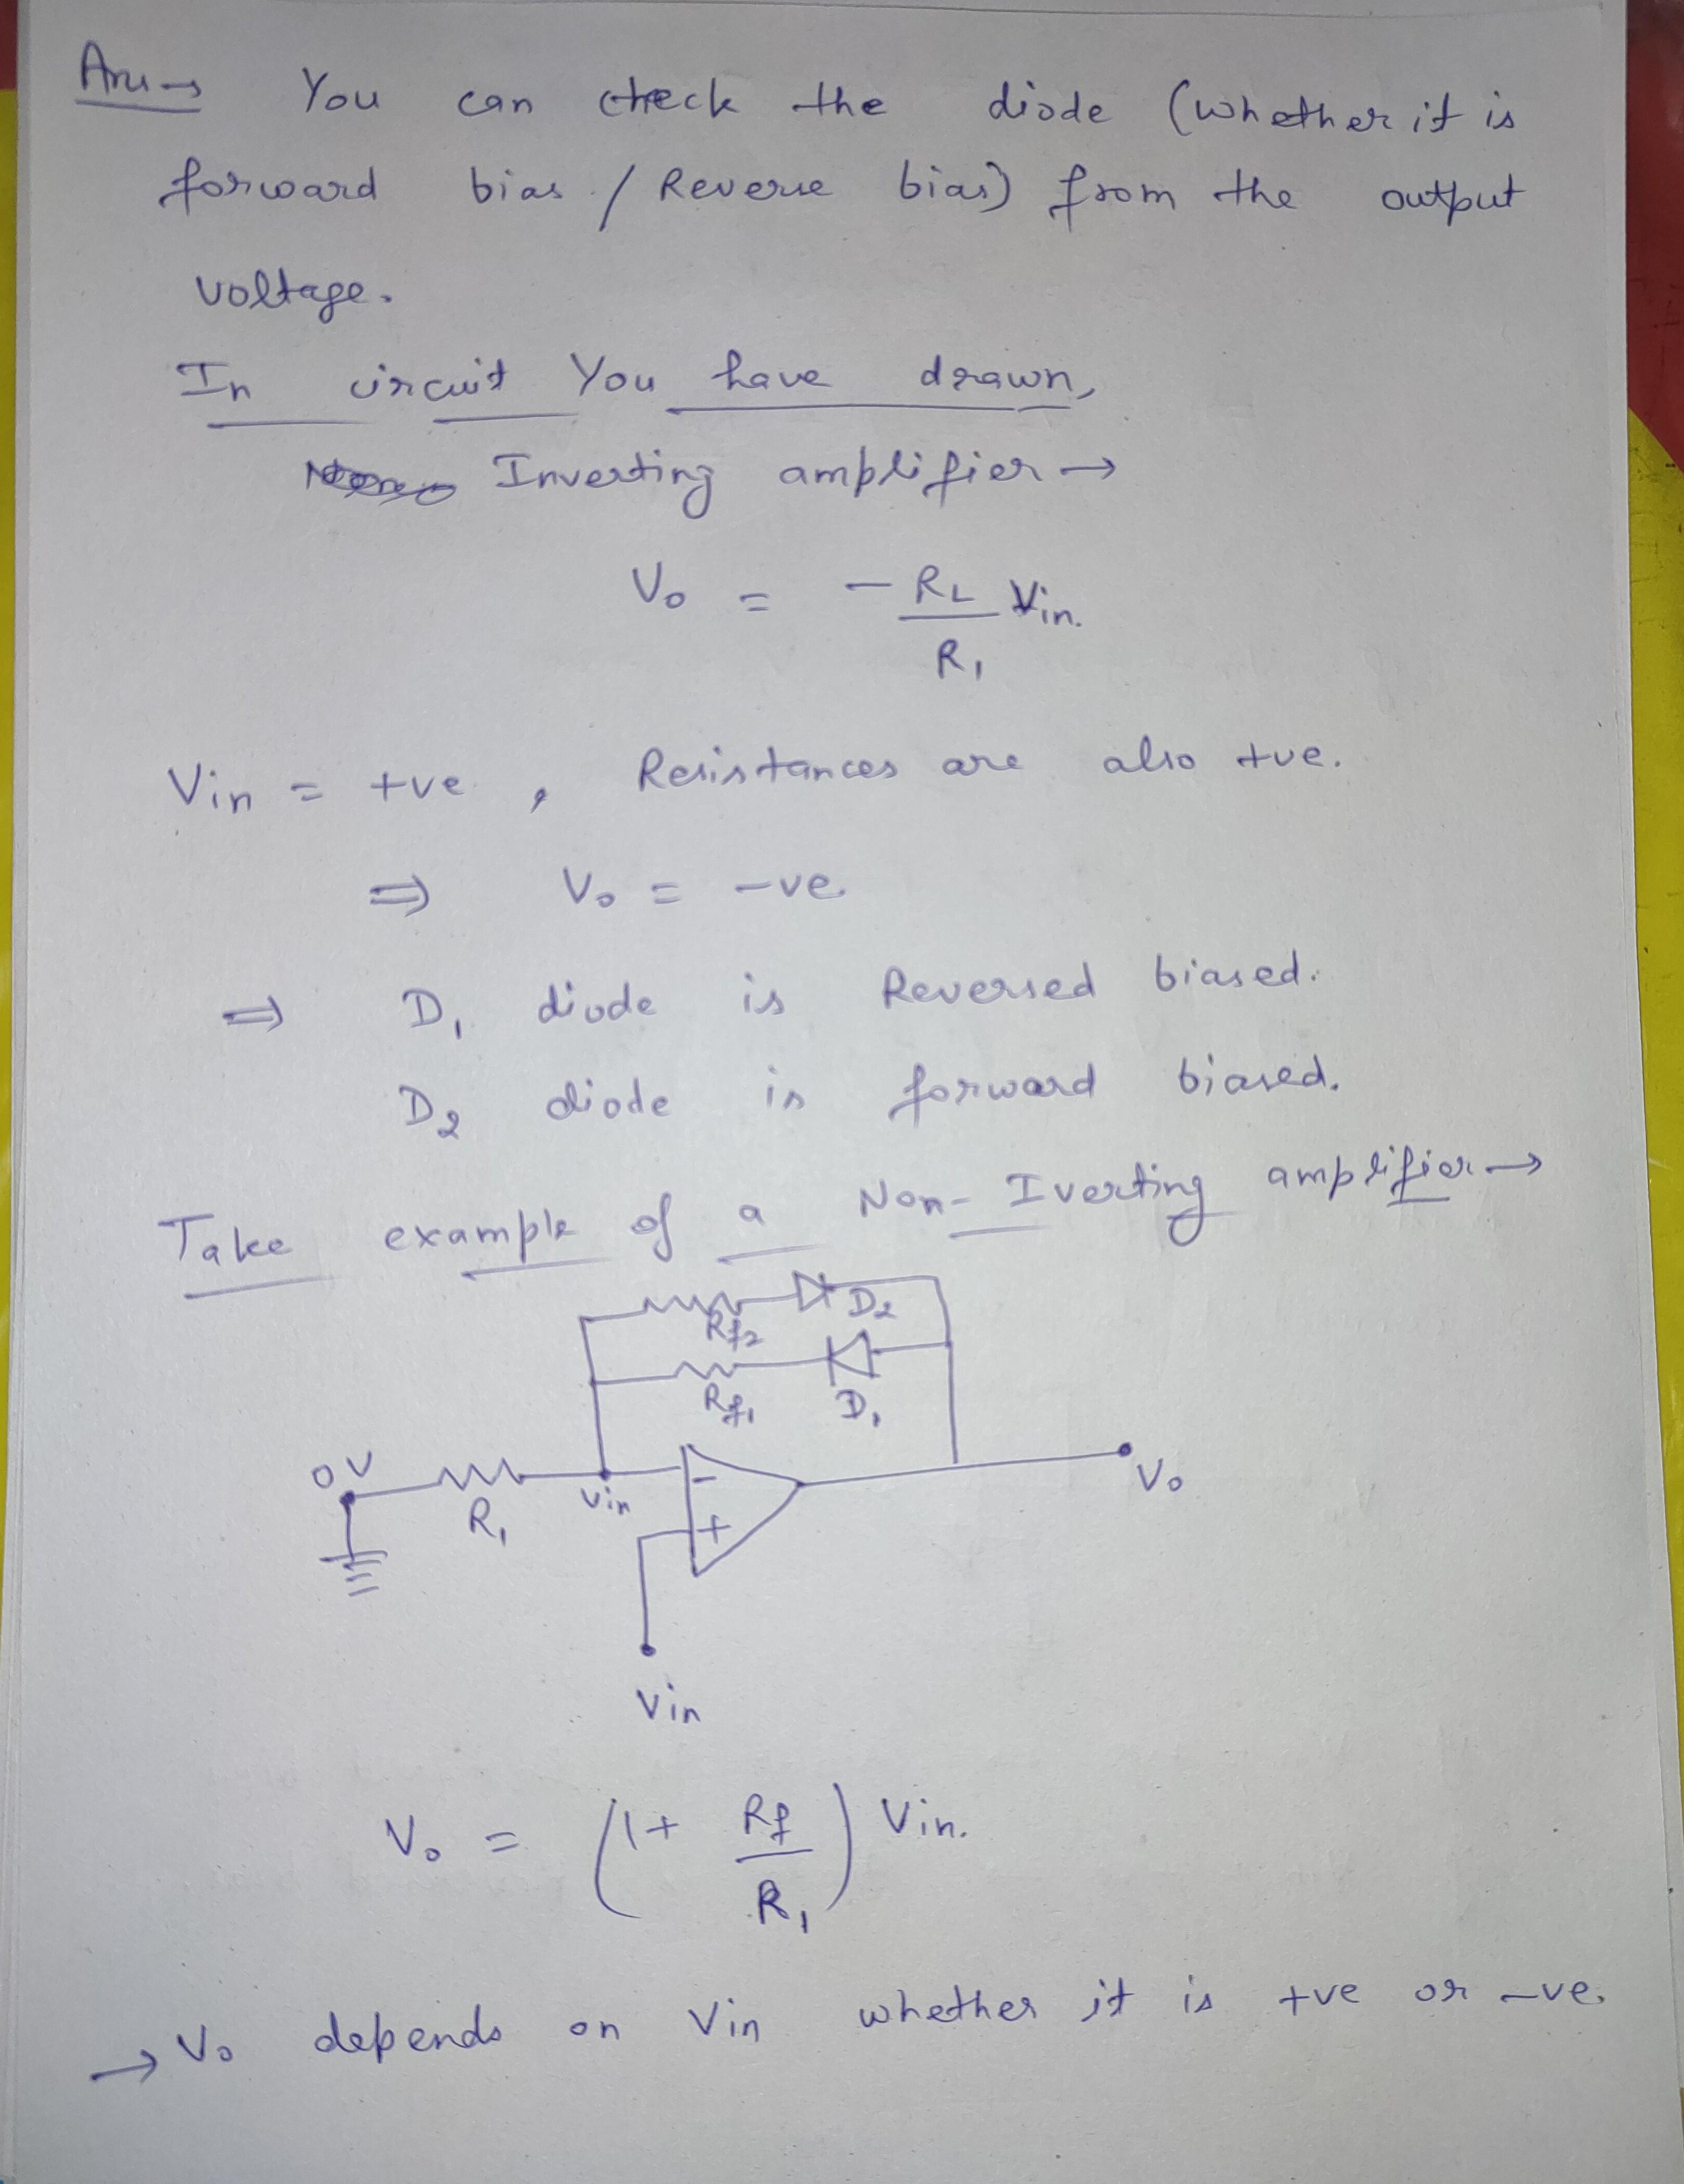 Ans→ You can check the diode (whether it is
forward bias / Reverse bias) from the output
voltage.
In circuit You have drawn,
Inverting amplifier →
Vo = - RL/R1 Vin.
Vin = +ve , Resistances are also +ve.
⇒ Vo = -ve.
⇒ D1 diode is Reversed biased.
D2 diode is forward biased.
Take example of a Non-Iverting amplifier →
D2
Rf2
Rf1 D1
0V
R1 Vin - Vo
+
Vin
Vo = (1 + Rf/R1) Vin.
→ Vo depends on Vin whether it is +ve or -ve.